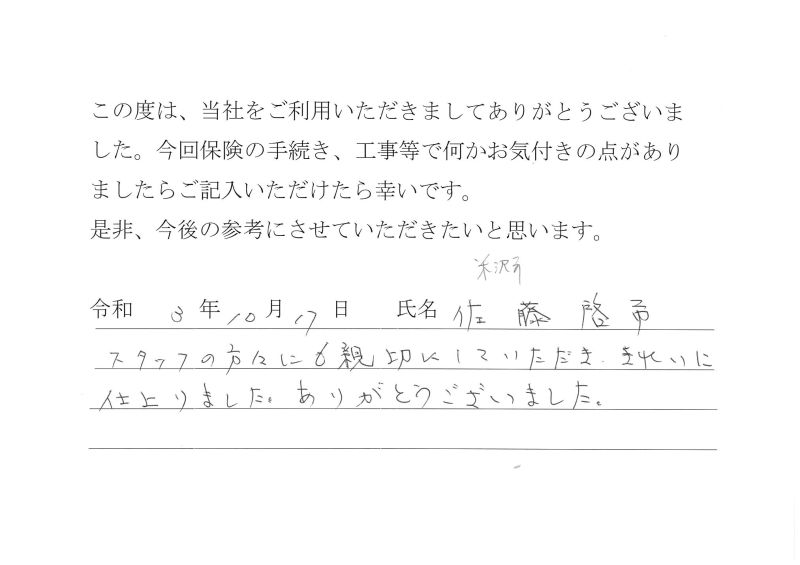 この度は、当社をご利用いただきましてありがとうございま
した。今回保険の手続き、工事等で何かお気付きの点があり
ましたらご記入いただけたら幸いです。
是非、今後の参考にさせていただきたいと思います。
米沢市
令和 3 年 10 月 17 日 氏名 佐藤 啓
スタッフの方々にも親切にしていただき、きれいに
仕上りました。ありがとうございました。